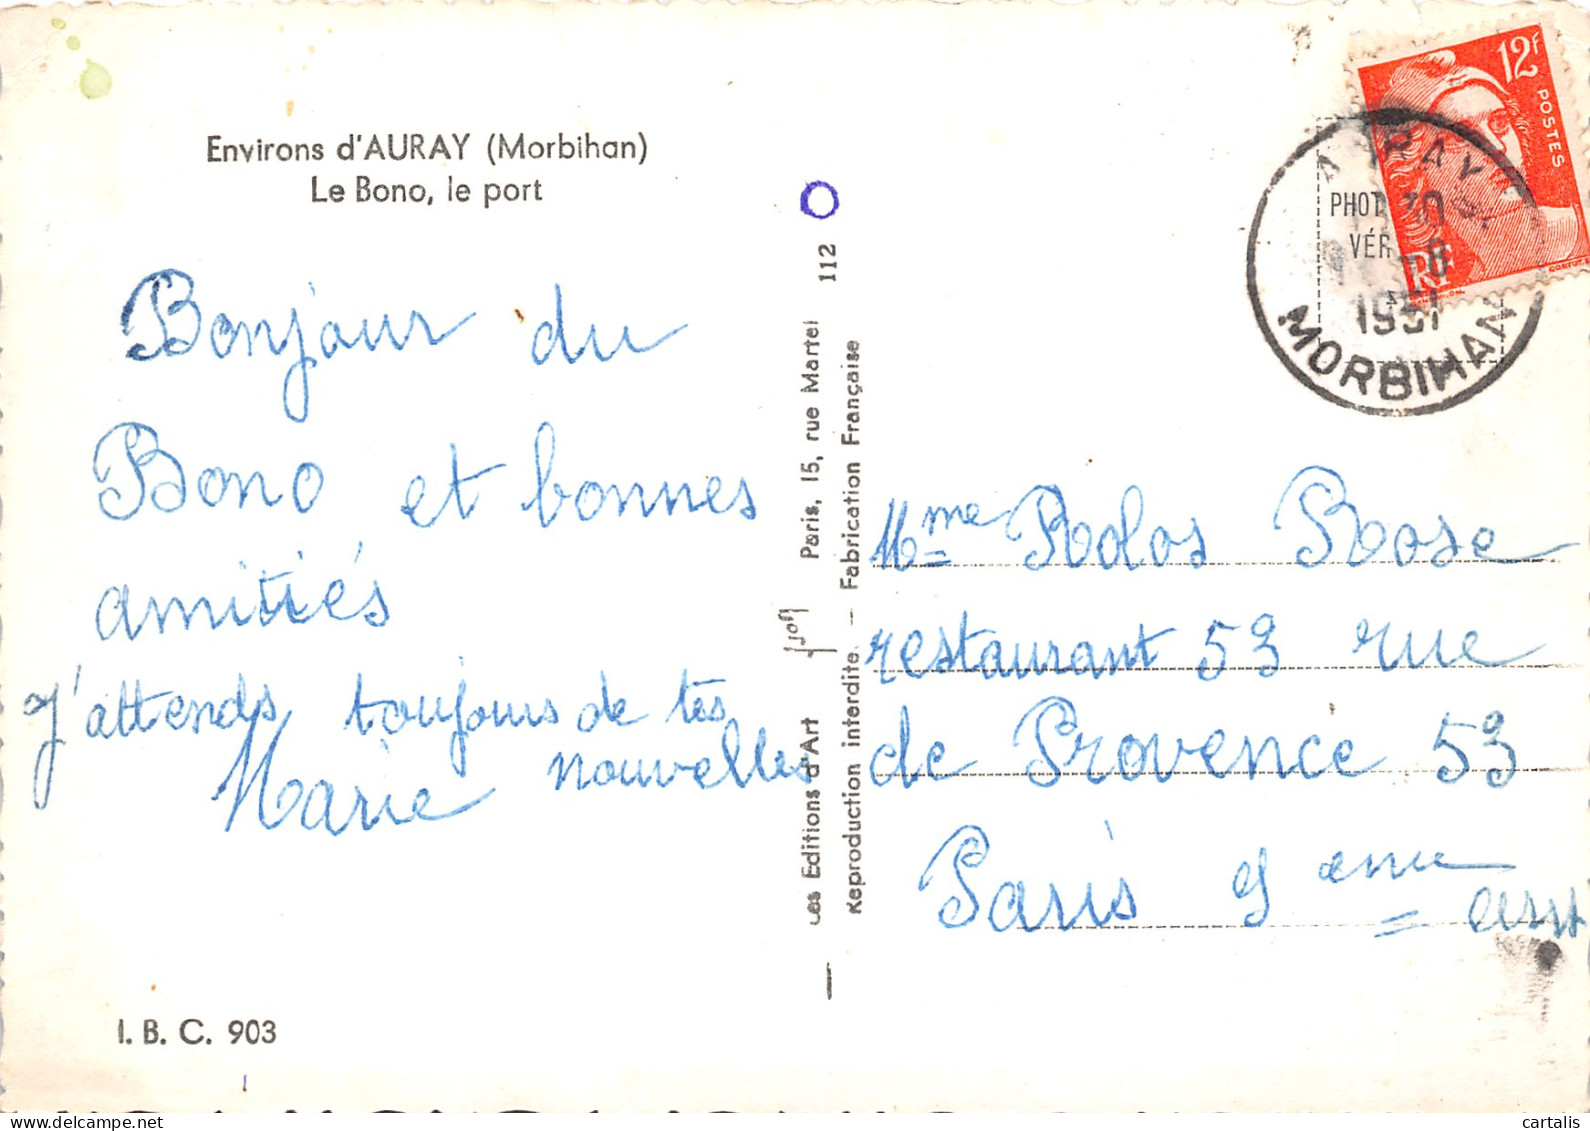 Environs d'AURAY (Morbihan)
Le Bono, le port
Bonjour du
Bono et bonnes
amitiés
J'attends toujours de tes
nouvelles
Marie
I. B. C. 903
Les Editions d'Art Paris, 15, rue Martel 112
Reproduction interdite — Fabrication Française
12F
POSTES
RF
PHOT
VÉR
AURAY
-8
1951
MORBIHAN
Mme Rolos Rose
restaurant 53 rue
de Provence 53
Paris 9 eme
cartalis